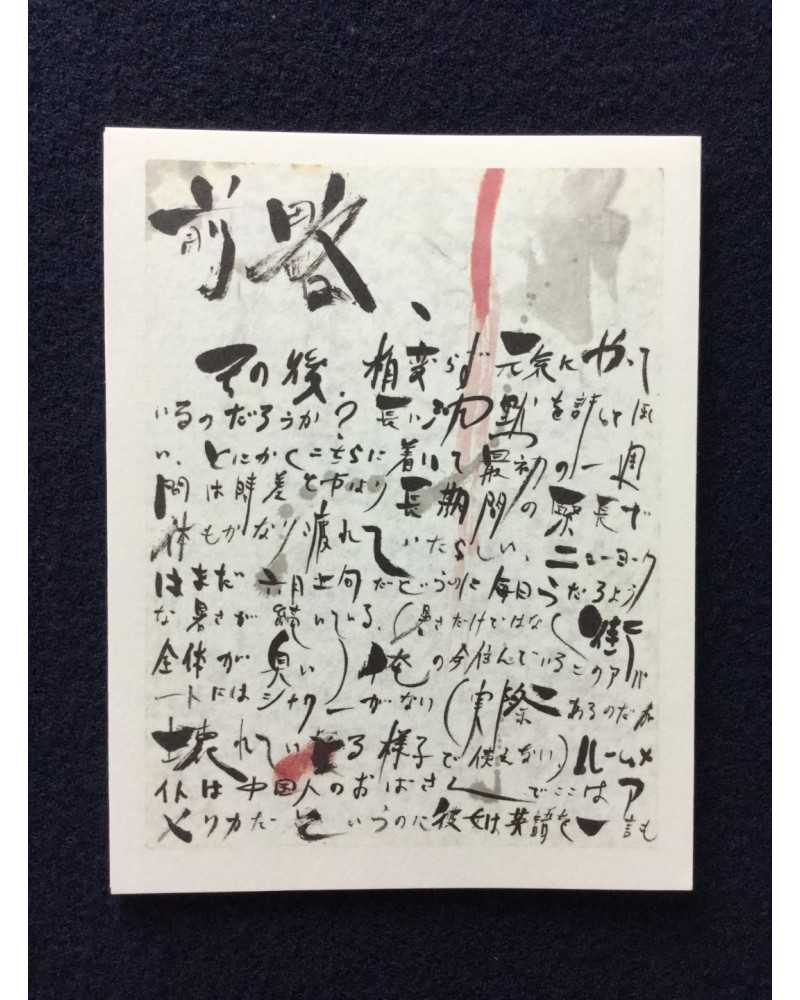 前略、
その後、相変らず元気にやって
いるのだろうか?長い沈黙を許して欲し
い、とにかくこちらに着いて最初の一週
間は時差と市より長期間の緊張で
体もかなり疲れていたらしい、ニューヨーク
はまだ六月上旬だというのに毎日うだるよう
な暑さが続いている、(暑さだけではなく街
全体が臭い)俺の今住んでいるこのアパ
ートにはシャワーがない(実際にあるのだが
壊れている様子で使えない)ルームメ
イトは中国人のおばさんでここはア
メリカだというのに彼女は英語を一言も